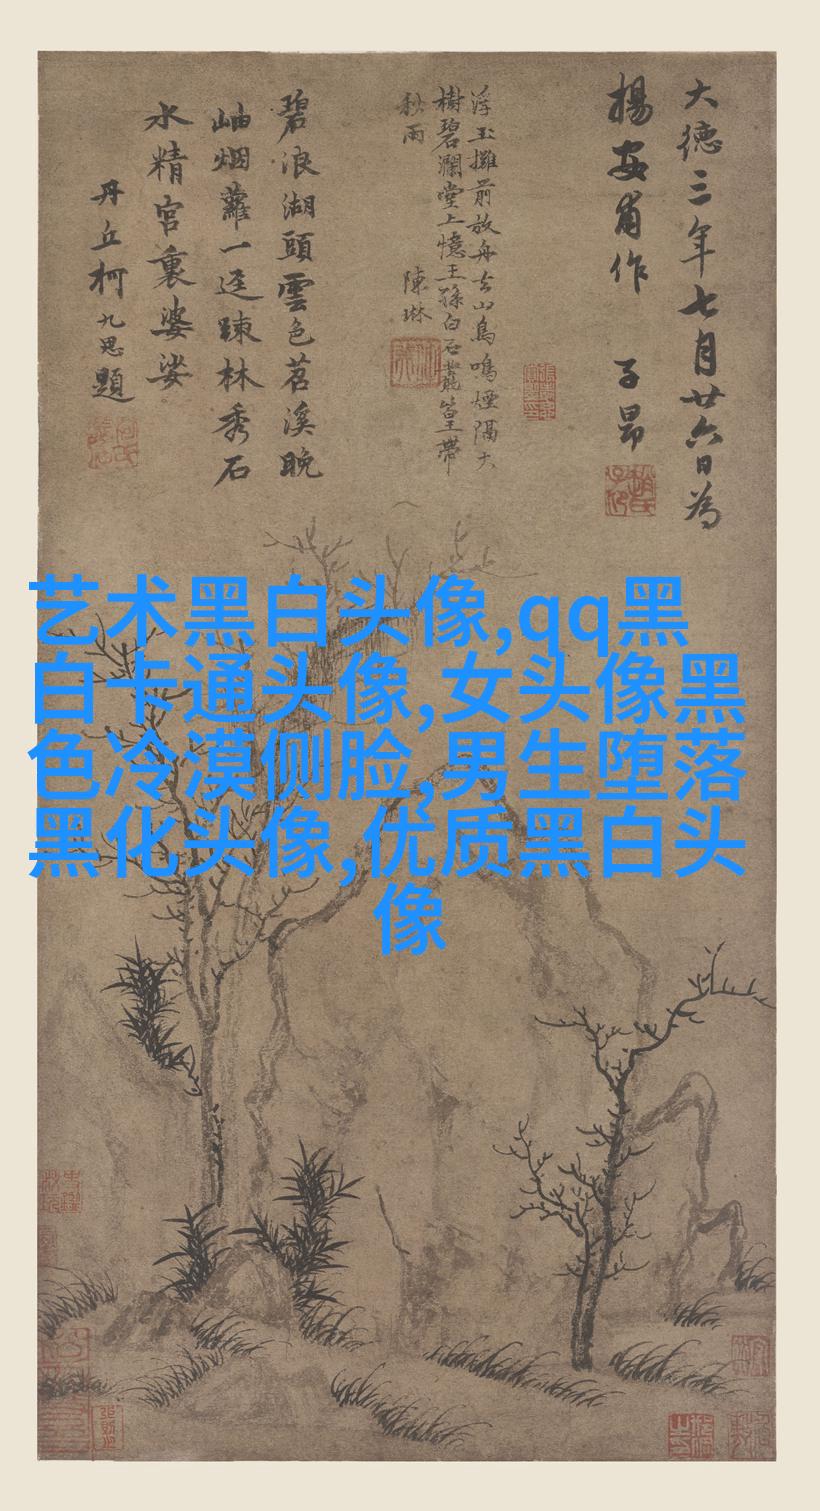 大德三年七月廿六日為
楊安甫作 子昂
浮玉攤前放舟去山鳥鳴煙隔大
樹碧瀾堂上憶王孫白石叢篁帶
秋雨 陳琳
碧浪湖頭雲色苕溪晚
岫烟蘿一逕踈林秀石
水精宮裏婆娑
丹丘柯九思題
艺术黑白头像,qq黑
白卡通头像,女头像黑
色冷漠侧脸,男生堕落
黑化头像,优质黑白头
像